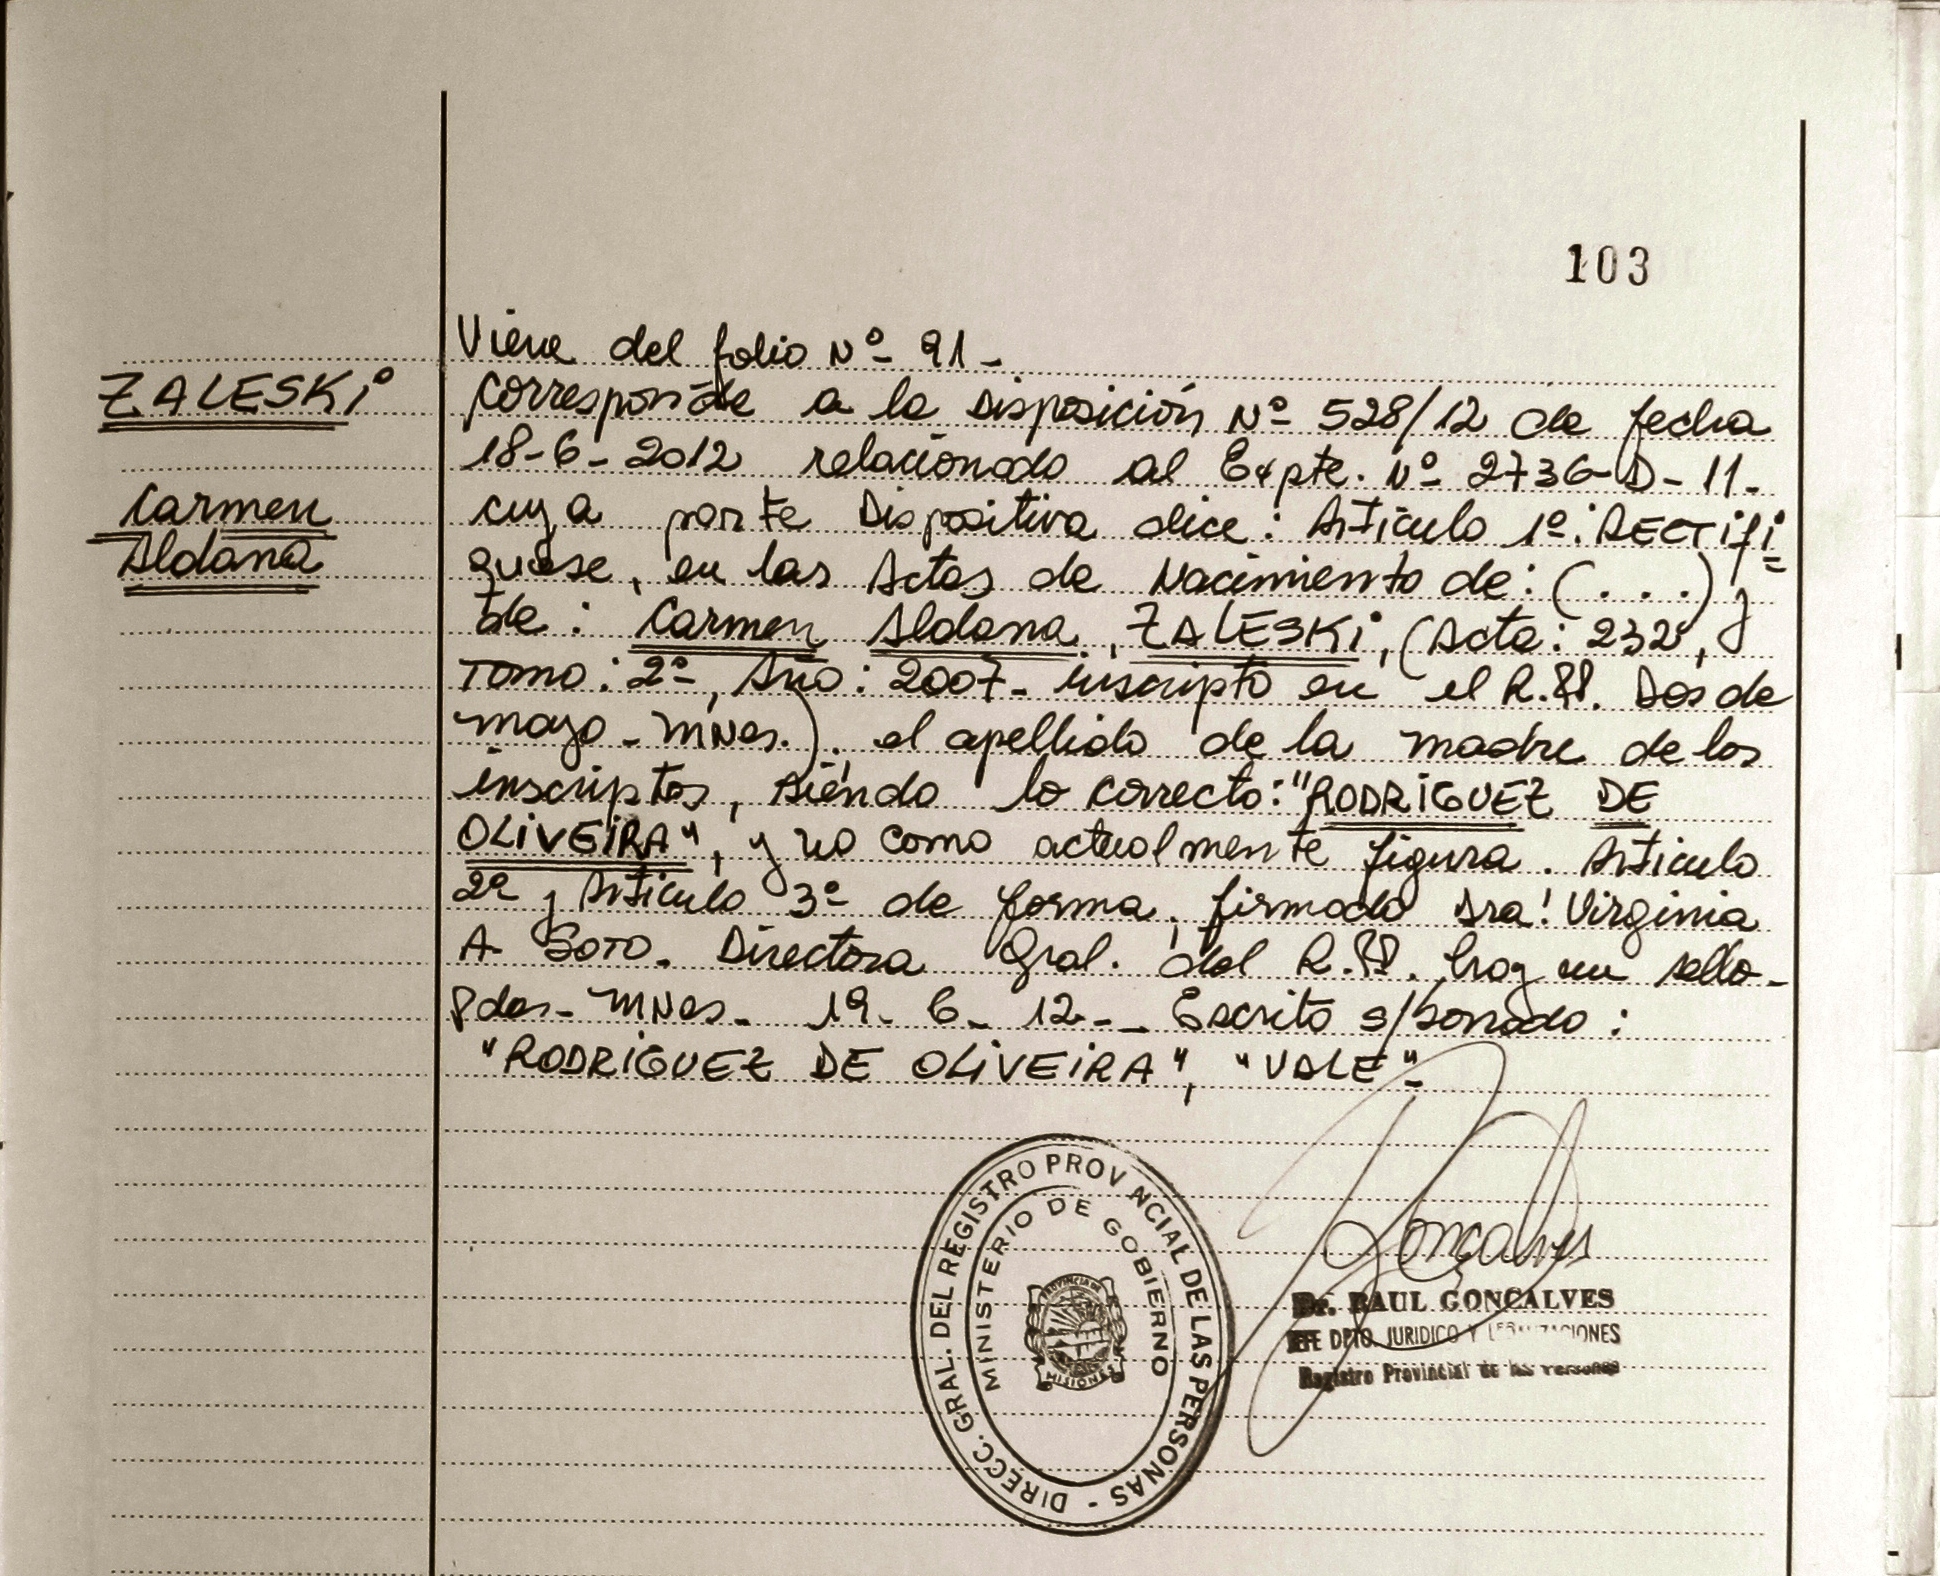 103
Viene del folio Nº- 91-
ZALESKi
corresponde a la Disposición Nº 528/12 de fecha
18-6-2012 relacionado al Expte. Nº 2736-D-11-
Carmen
Aldana
cuya parte Dispositiva dice: Artículo 1º: RECTifi=
quese, en las Actas de Nacimiento de: (...) y
de: Carmen Aldana, ZALESKi, (Acta: 232,
Tomo: 2º, Año: 2007- inscripto en el R.PP. Dos de
mayo - MNes.), el apellido de la madre de los
inscriptos, siendo lo correcto: "RODRiGUEZ DE
OLiVEiRA", y no como actualmente figura. Artículo
2º y Artículo 3º de forma, firmado Dra! Virginia
A. SOTO. Directora Gral. del R.PP. hay un sello-
Pdas- MNes- 19-6-12-- Escrito s/borrado:
"RODRiGUEZ DE OLiVEiRA", "VALE"-
DIRECC. GRAL. DEL REGISTRO PROVINCIAL DE LAS PERSONAS -
MINISTERIO DE GOBIERNO
PROVINCIA DE
MISIONES
Goncalves
Dr. RAUL GONCALVES
JEFE DPTO. JURIDICO Y LEGALIZACIONES
Registro Provincial de las Personas